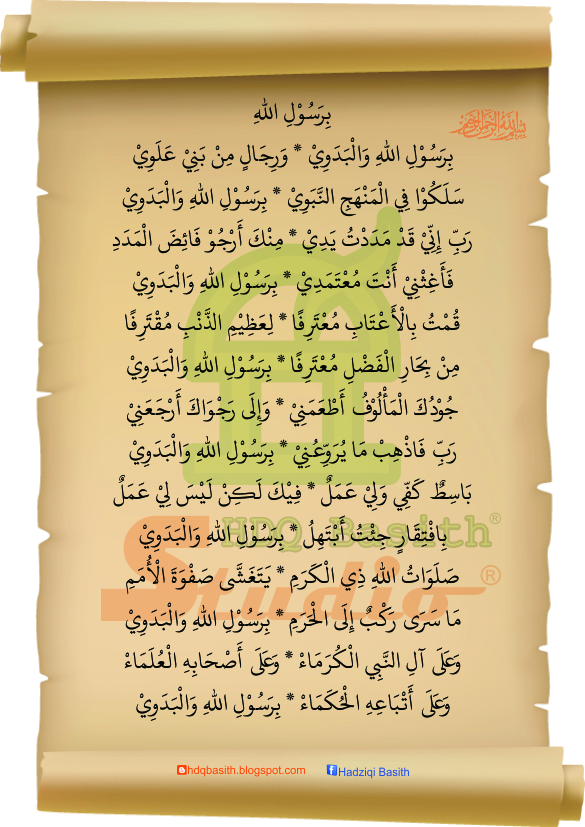 بِرَسُوْلِ اللهِ
بِسْمِ اللهِ الرَّحْمٰنِ الرَّحِيْمِ
بِرَسُوْلِ اللهِ وَالْبَدَوِيْ * وَرِجَالٍ مِنْ بَنِيْ عَلَوِيْ
سَلَكُوْا فِي الْمَنْهَجِ النَّبَوِيْ * بِرَسُوْلِ اللهِ وَالْبَدَوِيْ
رَبِّ إِنِّيْ قَدْ مَدَدْتُ يَدِيْ * مِنْكَ أَرْجُوْ فَائِضَ الْمَدَدِ
فَأَغِثْنِيْ أَنْتَ مُعْتَمَدِيْ * بِرَسُوْلِ اللهِ وَالْبَدَوِيْ
قُمْتُ بِالْأَعْتَابِ مُعْتَرِفًا * لِعَظِيْمِ الذَّنْبِ مُقْتَرِفًا
مِنْ بِحَارِ الْفَضْلِ مُعْتَرِفًا * بِرَسُوْلِ اللهِ وَالْبَدَوِيْ
جُوْدُكَ الْمَأْلُوْفُ أَطْعَمَنِيْ * وَإِلَى رَجْوَاكَ أَرْجَعَنِيْ
رَبِّ فَاذْهِبْ مَا يُرَوِّعُنِيْ * بِرَسُوْلِ اللهِ وَالْبَدَوِيْ
بَاسِطٌ كَفِّي وَلِيْ عَمَلٌ * فِيْكَ لَكِنْ لَيْسَ لِيْ عَمَلٌ
HDQ Basith®
بِافْتِقَارٍ جِئْتُ أَبْتَهِلُ * بِرَسُوْلِ اللهِ وَالْبَدَوِيْ
Studio®
صَلَوَاتُ اللهِ ذِي الْكَرَمِ * يَتَغَشَّى صَفْوَةَ الْأُمَمِ
مَا سَرَى رَكْبٌ إِلَى الْحَرَمِ * بِرَسُوْلِ اللهِ وَالْبَدَوِيْ
وَعَلَى آلِ النَّبِي الْكُرَمَاءْ * وَعَلَى أَصْحَابِهِ الْعُلَمَاءْ
وَعَلَى أَتْبَاعِهِ الْحُكَمَاءْ * بِرَسُوْلِ اللهِ وَالْبَدَوِيْ
hdqbasith.blogspot.com Hadziqi Basith